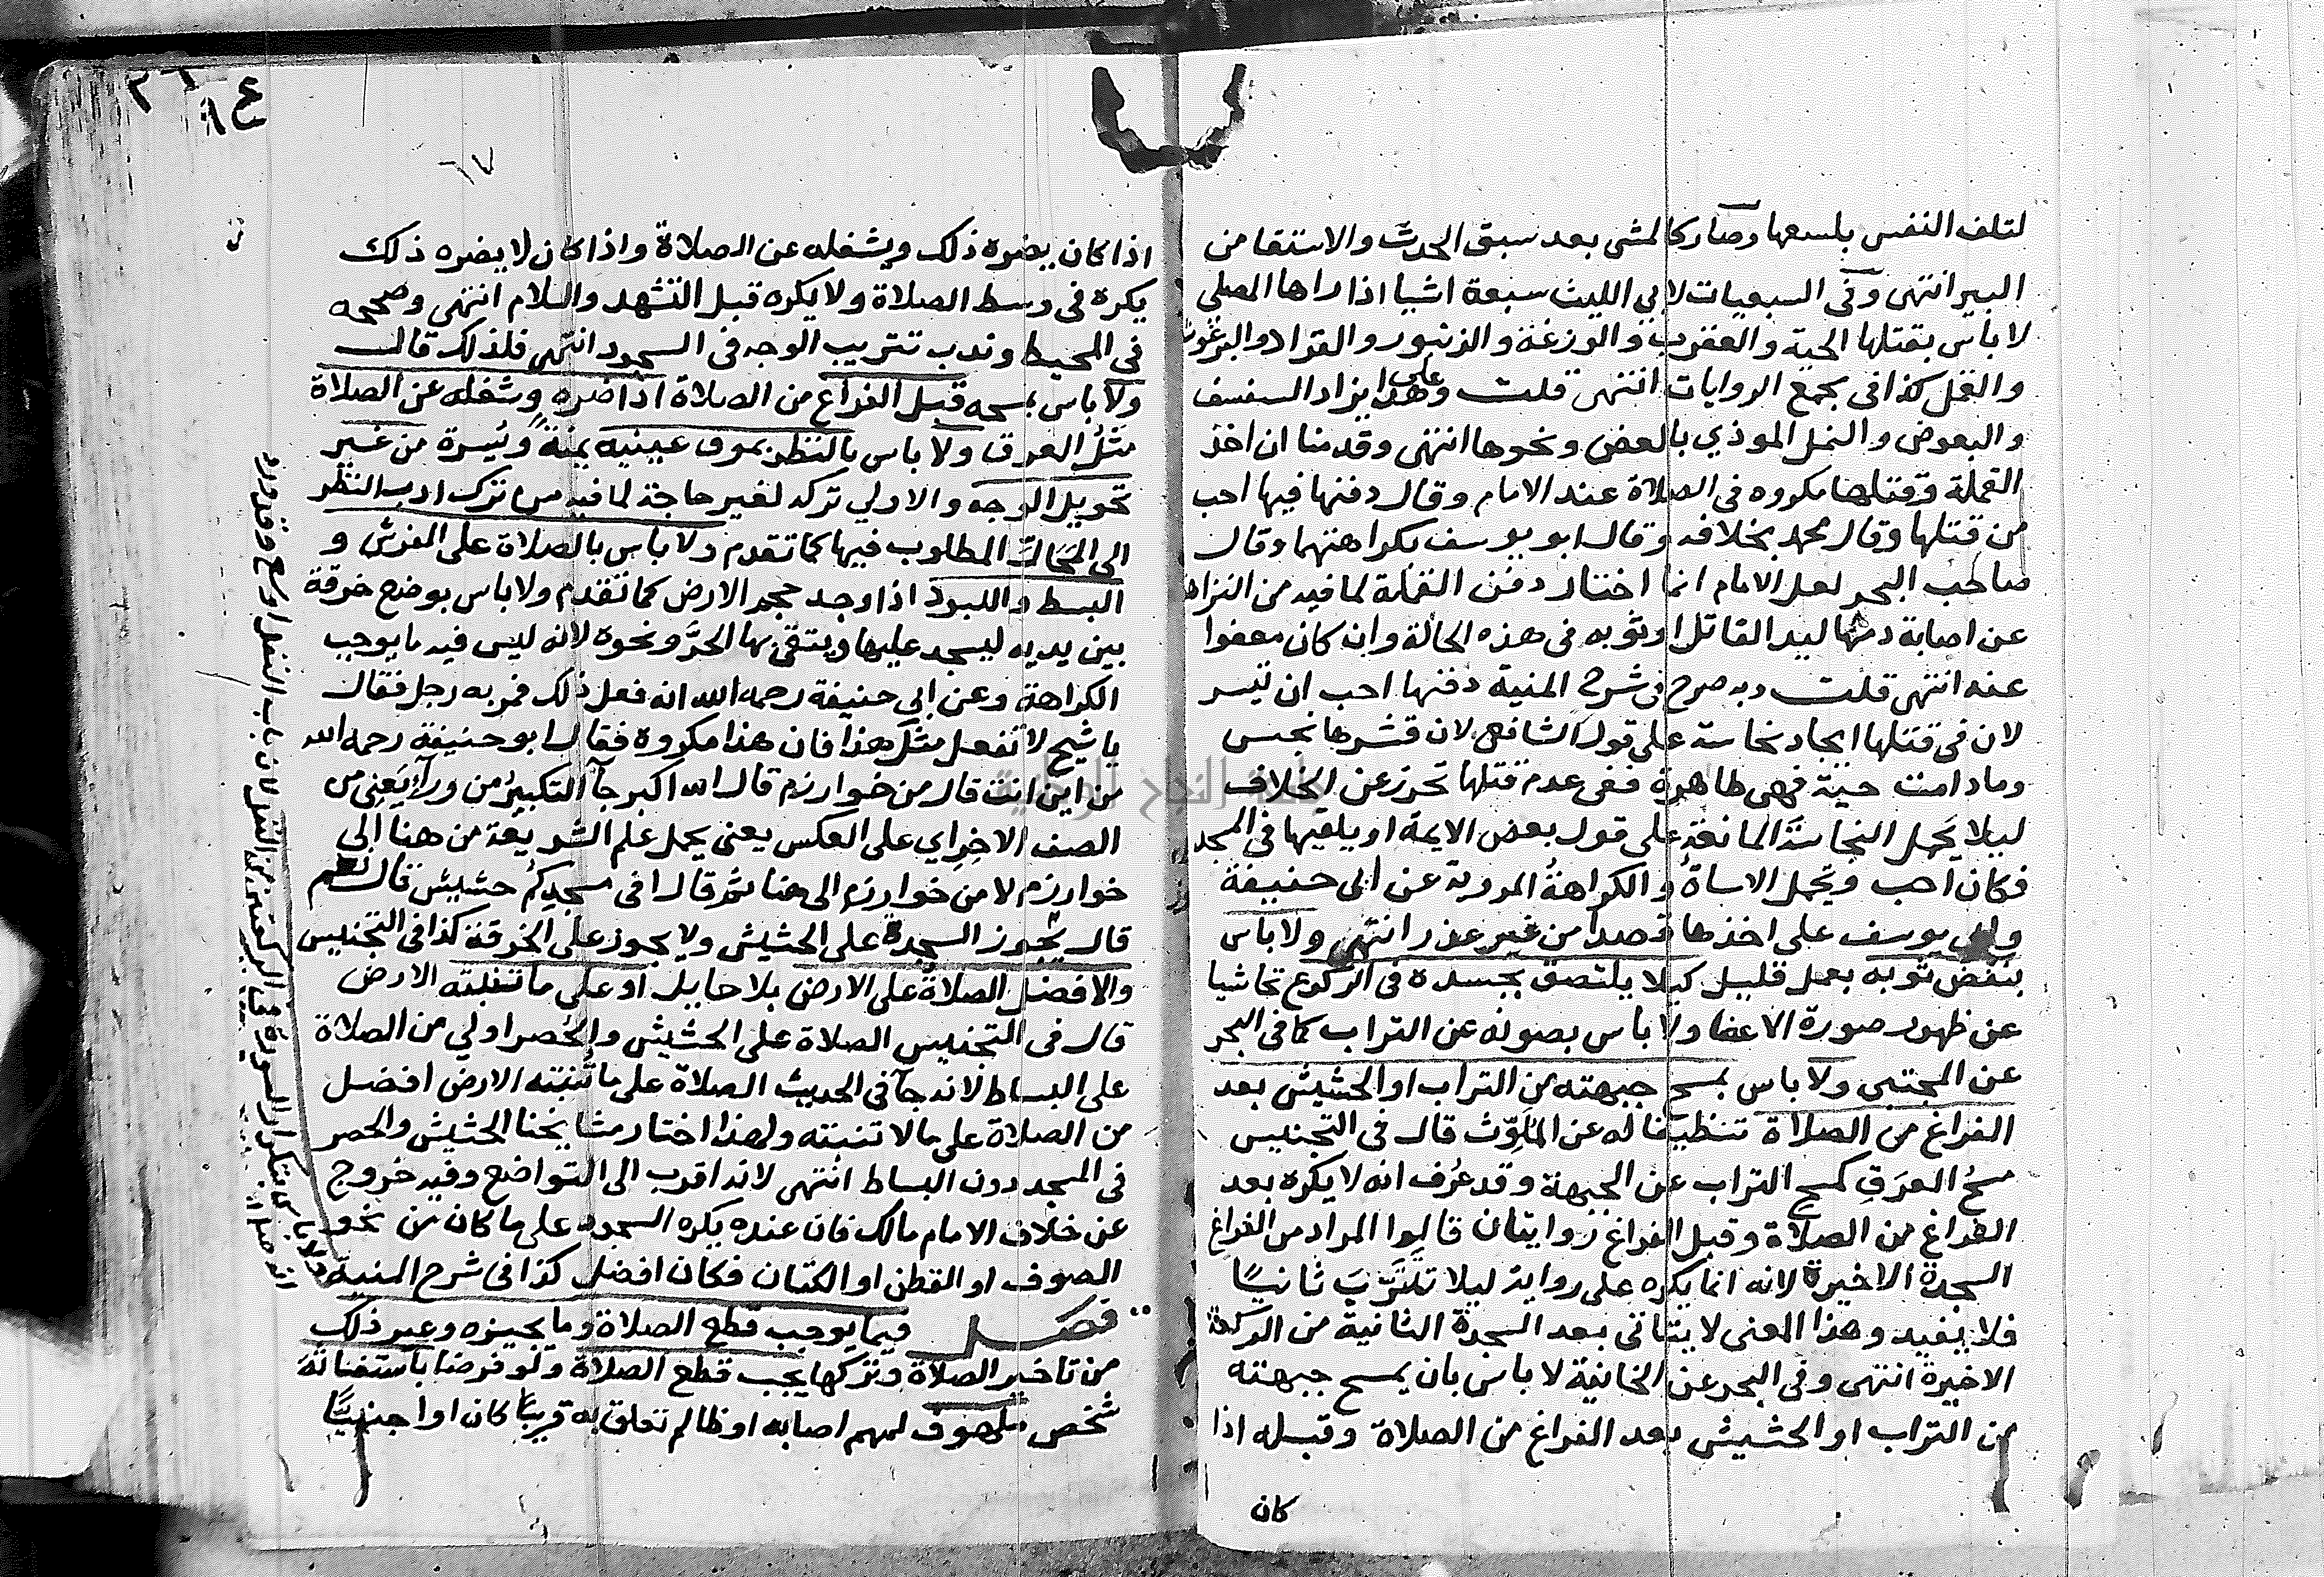 لتلف النفس بلسعها وصار كالمشي بعد سبق الحدث والاستقا من
البير انتهى وفي السبعيات لابي الليث سبعة اشيا اذا راها المصلي
لا باس بقتلها الحية والعقرب والوزغة والزنبور والقراد والبرغوث
والقمل كذا في مجمع الروايات انتهى قلت وعلى هذا يزاد
والبعوض والنمل الموذي بالعض ونحوها انتهى وقدمنا ان اخذ
القملة وقتلها مكروه في الصلاة عند الامام وقال دفنها فيها احب
من قتلها وقال محمد بخلافه وقال ابو يوسف بكراهتهما وقال
صاحب البحر لعل الامام انما اختار دفن القملة لما فيه من النزاهة
عن اصابة دمها ليد القاتل او ثوبه في هذه الحالة وان كان معفوا
عنه انتهى قلت وبه صرح في شرح المنية دفنها احب ان تيسر
لان في قتلها ايجاد نجاسة على قول الشافعي لان قشرها نجس
وما دامت حية فهي طاهرة ففي عدم قتلها تحرز عن الخلاف
ليلا يحمل النجاسة المانعة على قول بعض الايمة او يلقيها في المسجد
فكان احب وتحمل الاساة والكراهة المروية عن ابي حنيفة
وابي يوسف على اخذها قصدا من غير عذر انتهى ولا باس
بنفض ثوبه بعمل قليل كيلا يلتصق بجسده في الركوع تحاشيا
عن ظهور صورة الاعضا ولا باس بصونه عن التراب كما في البحر
عن المجتبى ولا باس بمسح جبهته من التراب او الحشيش بعد
الفراغ من الصلاة تنظيفا له عن الملوث قال في التجنيس
مسح العرق كمسح التراب عن الجبهة وقد عرف انه لا يكره بعد
الفراغ من الصلاة وقبل الفراغ روايتان قالوا المراد من الفراغ
السجدة الاخيرة لانه انما يكره على رواية ليلا تترب ثانيا
فلا يفيد وهذا المعنى لا يتاتى بعد السجدة الثانية من الركعة
الاخيرة انتهى وفي البحر عن الخانية لا باس بان يمسح جبهته
من التراب او الحشيش بعد الفراغ من الصلاة وقبله اذا
كان
٦٤
٦٧
اذا كان يضره ذلك ويشغله عن الصلاة واذا كان لا يضره ذلك
يكره في وسط الصلاة ولا يكره قبل التشهد والسلام انتهى وصححه
في المحيط وندب تتريب الوجه في السجود انتهى فلذلك قال
ولا باس بمسحه قبل الفراغ من الصلاة اذا ضره وشغله عن الصلاة
مثل العرق ولا باس بالنظر بموق عينيه يمنة ويسرة من غير
تحويل الوجه والاولى تركه لغير حاجة لما فيه من ترك ادب النظر
الى المحال المطلوب فيها كما تقدم ولا باس بالصلاة على الفرش و
البسط واللبود اذا وجد حجم الارض كما تقدم ولا باس بوضع خرقة
بين يديه ليسجد عليها ويتقي بها الحر ونحوه لانه ليس فيه ما يوجب
الكراهة وعن ابي حنيفة رحمه الله انه فعل ذلك فمر به رجل فقال
يا شيخ لا تفعل مثل هذا فان هذا مكروه فقال ابو حنيفة رحمه الله
من اين انت قال من خوارزم قال الله اكبر جآ التكبير من ورآء يعني من
الصف الاخر اي على العكس يعني يحمل علم الشريعة من هنا الى
خوارزم لا من خوارزم الى هنا ثم قال افي مسجدكم حشيش قال نعم
قال يجوز السجدة على الحشيش ولا يجوز على الخرقة كذا في التجنيس
والافضل الصلاة على الارض بلا حايل او على ما تنبته الارض
قال في التجنيس الصلاة على الحشيش والحصر اولى من الصلاة
على البساط لانه جآ في الحديث الصلاة على ما تنبته الارض افضل
من الصلاة على ما لا تنبته ولهذا اختار مشايخنا الحشيش والحصر
في المسجد دون البساط انتهى لانه اقرب الى التواضع وفيه خروج
عن خلاف الامام مالك فان عنده يكره السجود على ما كان من نحو
الصوف او القطن او الكتان فكان افضل كذا في شرح المنية
فصل فيما يوجب قطع الصلاة وما يجيزه وغير ذلك
من تاخير الصلاة وتركها يجب قطع الصلاة ولو فرضا باستغاثة
شخص ملهوف لمهم اصابه او ظالم تعلق به قريبا كان او اجنبيا
ولا باس بتكرار السورة في الركعتين من النفل لان باب النفل اوسع وقد ورد
انه صلى